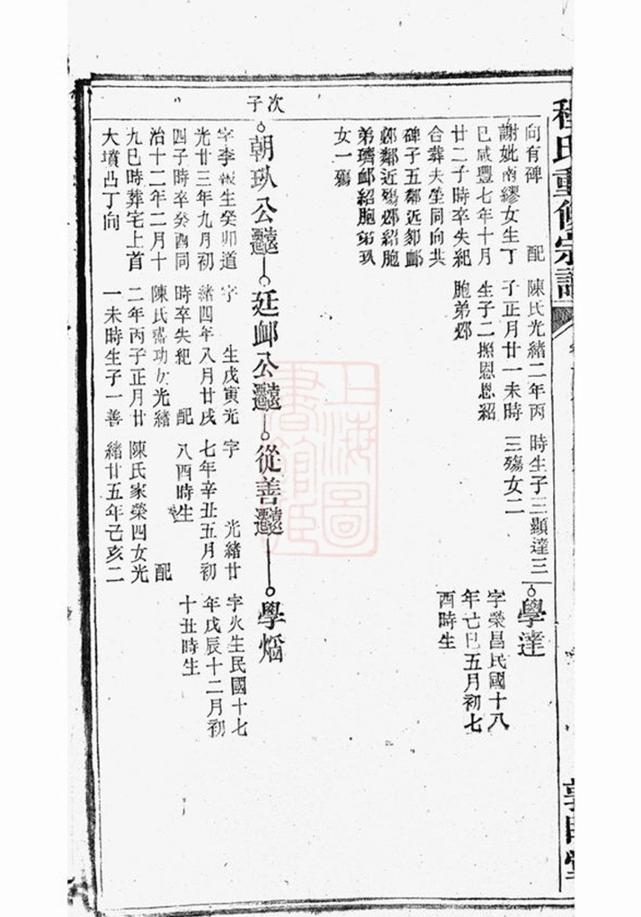 程氏重修宗譜
向有碑　配
謝妣南繆女生丁
巳咸豐七年十月
廿二子時卒失紀
合葬夫塋同向共
碑子五鄰近邠邮
鄒鄰近殤鄒紹胞
弟璾邮紹胞弟玖
女一殤
陳氏光緒二年丙
子正月廿一未時
生子二照恩恩紹
胞弟鄒
時生子三顯達三
三殤女二
學達
字榮昌民國十八
年己巳五月初七
酉時生
次子
朝玖公
字李報生癸卯道
光廿三年九月初
四子時卒癸酉同
治十二年二月十
九巳時葬宅上首
大墳凸丁向
廷邮公
字　生戊寅光
緒四年八月廿戌
時卒失紀　配
陳氏盛功女光緒
二年丙子正月廿
一未時生子一善
從善
字　光緒廿
七年辛丑五月初
八酉時生
配
陳氏家榮四女光
緒廿五年己亥二
學熖
字火生民國十七
年戊辰十二月初
十丑時生
上海圖書館藏